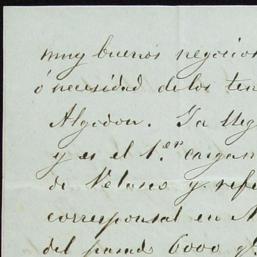 muy buenos negocios
ó necesidad de los ten
Algodon. Ya lleg
y es el 1.er cargam
de Velasco y refe
corresponsal en N
del pasado 6000 q